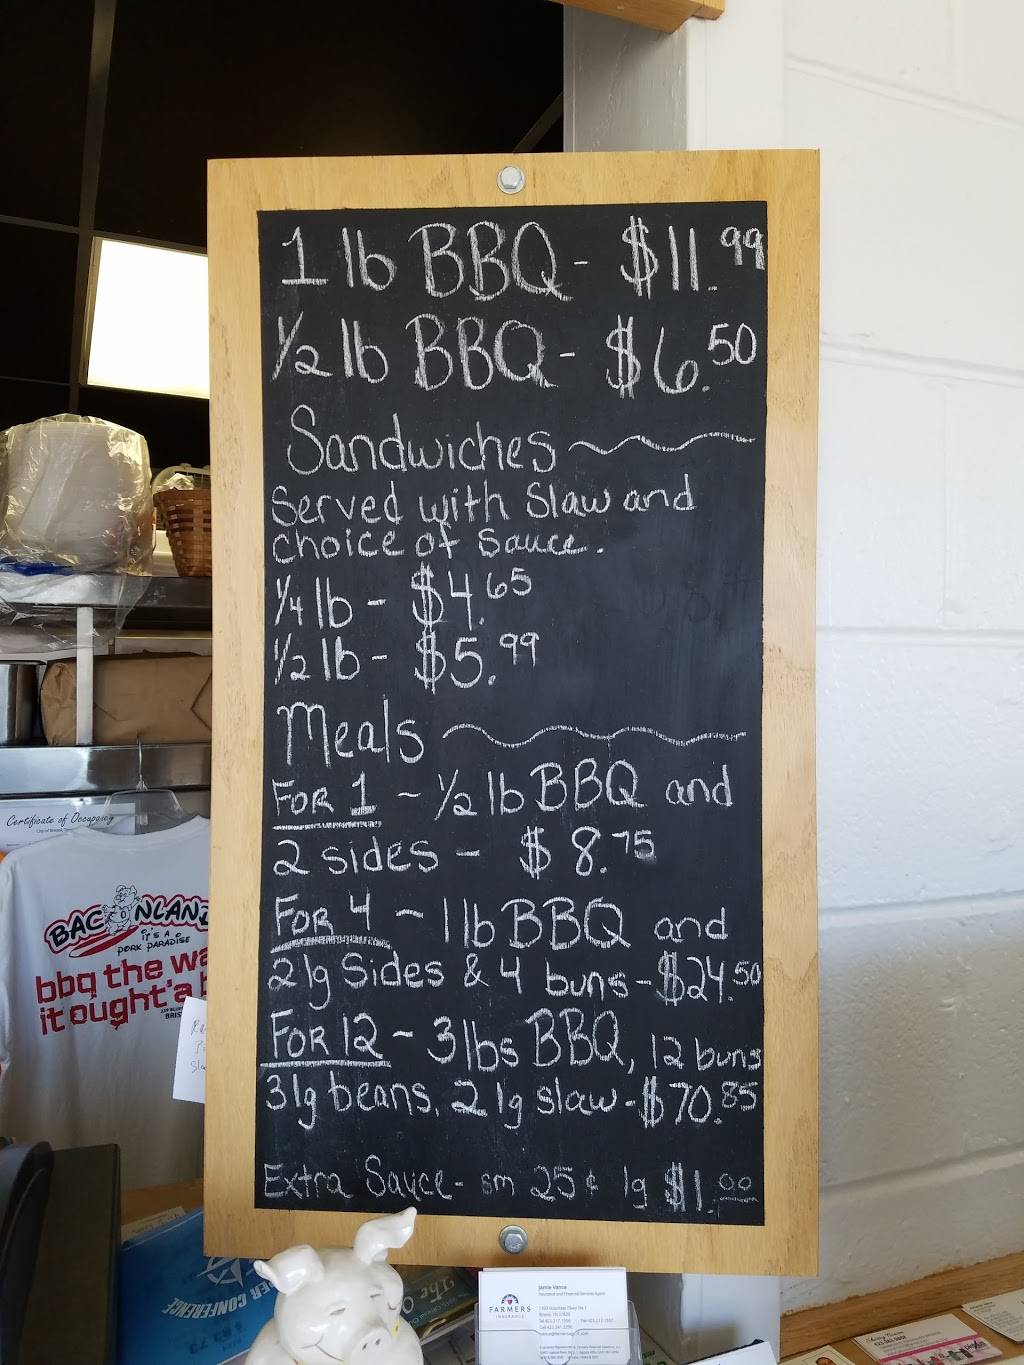 1 lb BBQ - $11.99
1/2 lb BBQ - $6.50
Sandwiches
Served with Slaw and
choice of Sauce.
1/4 lb - $4.65
1/2 lb - $5.99
Meals
FOR 1 ~ 1/2 lb BBQ and
2 sides - $8.75
FOR 4 ~ 1 lb BBQ and
2 lg Sides & 4 buns - $24.50
FOR 12 ~ 3 lbs BBQ, 12 buns
3 lg beans, 2 lg slaw - $70.85
Extra Sauce - sm 25¢ lg $1.00
Certificate of Occupancy
BACONLAND
IT'S A
PORK PARADISE
bbq the wa
it ought'a b
BRIS
CONFERENCE
The
Jamie Vance
Insurance and Financial Services Agent
FARMERS
INSURANCE